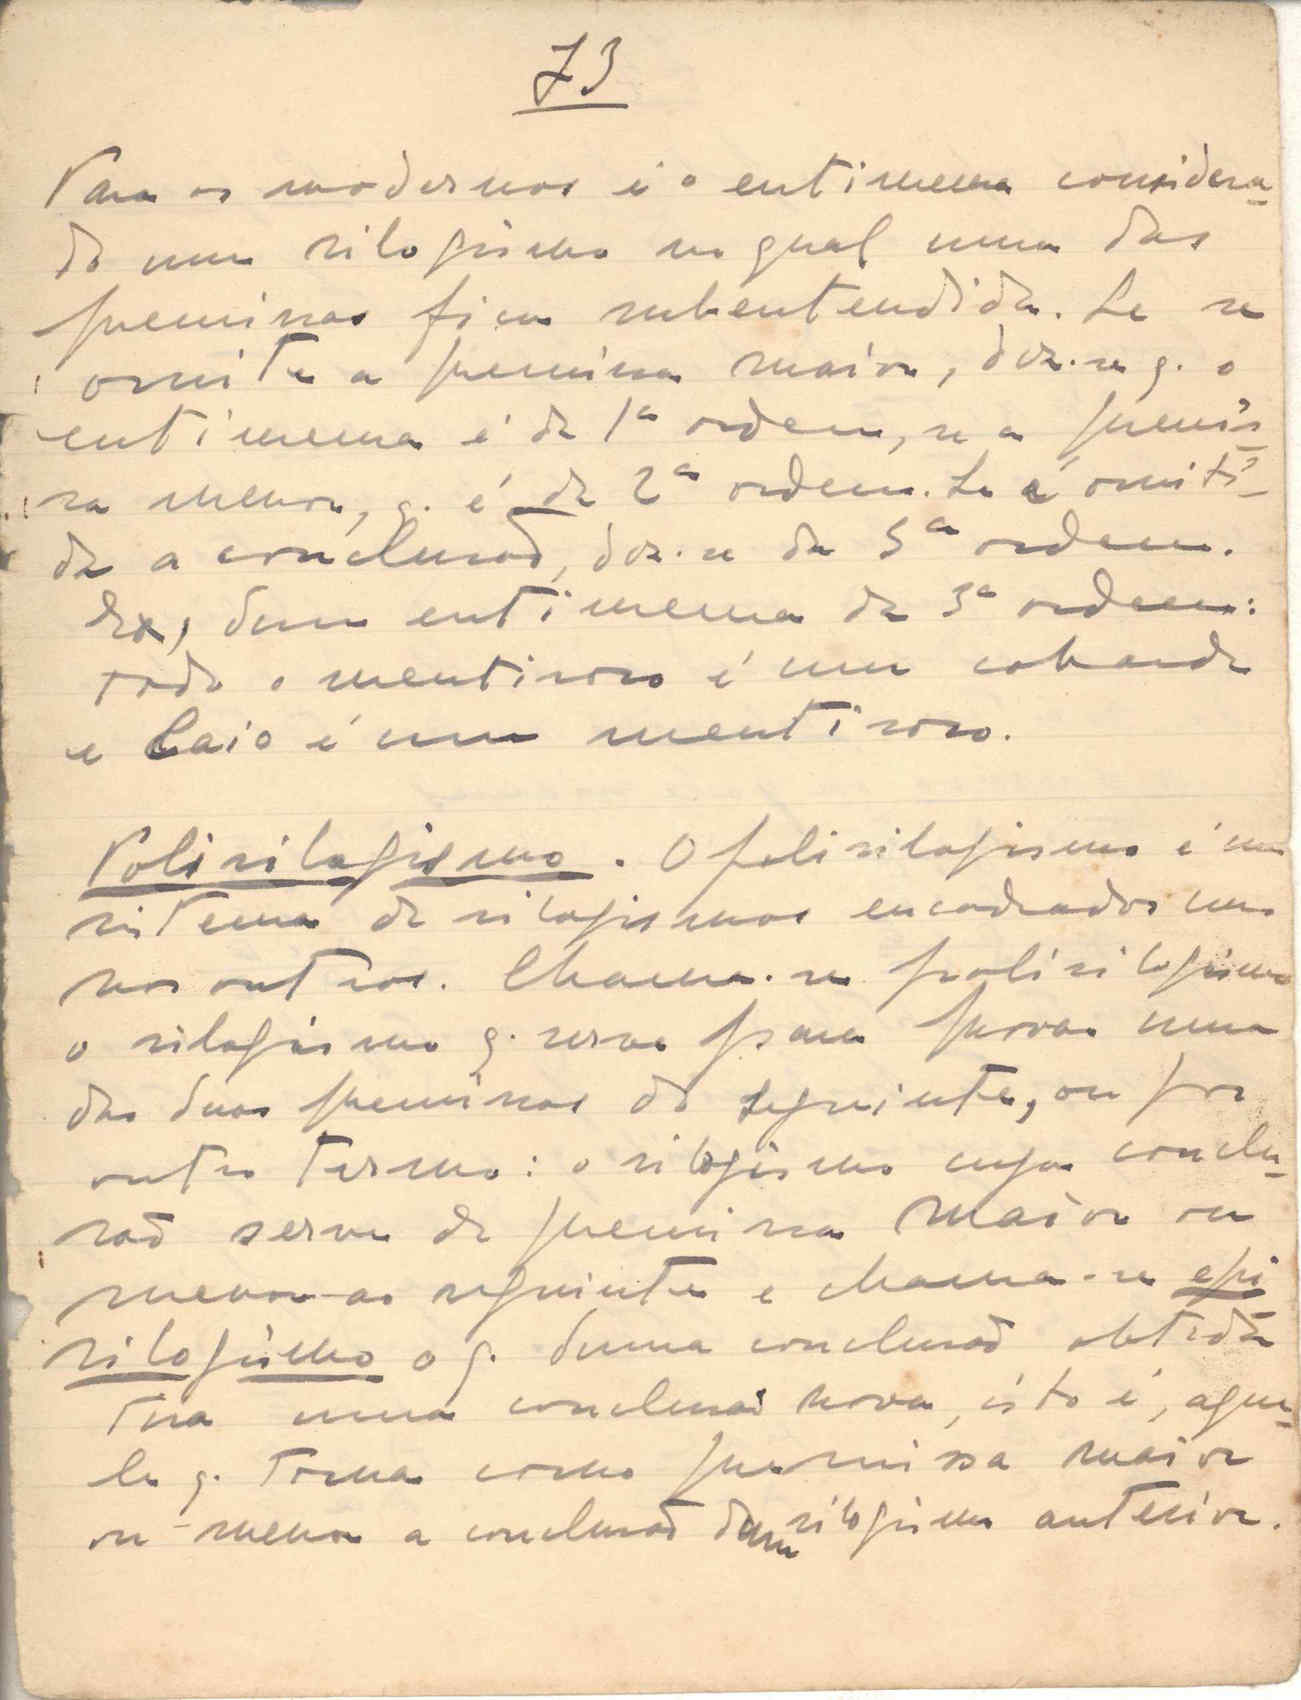 73
Para os modernos é o entimema considera-
do um silogismo no qual uma das
premissas fica subentendida. Se se
omite a premissa maior, diz-se q. o
entimema é de 1ª ordem, se a premis-
sa menor, q. é de 2ª ordem. Se é omiti-
da a conclusão, diz-se da 3ª ordem.
Ex, dum entimema da 3ª ordem:
todo o mentiroso é um cobarde
e Caio é um mentiroso.
Polisilogismo. O polisilogismo é um
sistema de silogismos encadeados uns
nos outros. Chama-se polisilogismo
o silogismo q. serve para provar uma
das duas premissas do seguinte, ou por
outro termo: o silogismo cuja conclu-
são serve de premissa maior ou
menor ao seguinte e chama-se epi
silogismo o q. duma conclusão obtida
tira uma conclusão nova, isto é, aque-
le q. toma como premissa maior
ou menor a conclusão dum silogismo anterior.